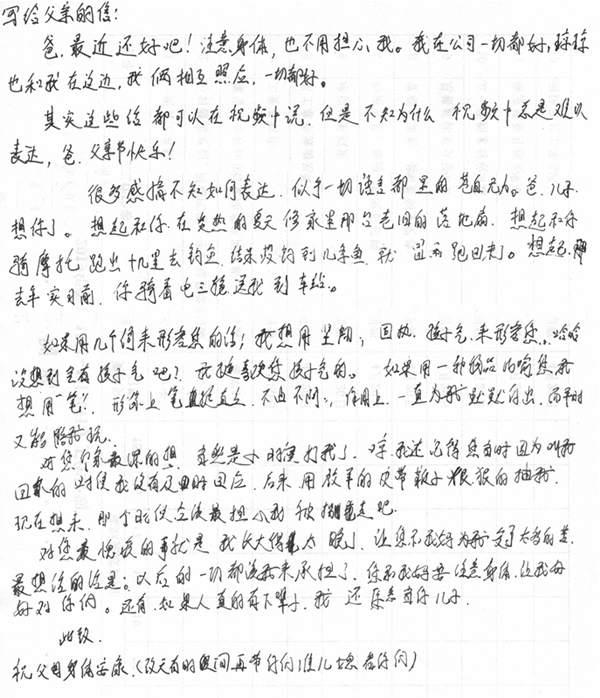 写给父亲的信:
爸,最近还好吧!注意身体,也不用担心我。我在公司一切都好,琼琼
也和我在这边,我俩相互照应,一切都好。
其实这些话都可以在视频中说,但是不知为什么 视频中总是难以
表达,爸,父亲节快乐!
很多感情不知如何表达,似乎一切语言都 的苍白无力。爸,儿子
想你了。想起和你在炎热的夏天修家里那台老旧的落地扇,想起和你
骑摩托跑出十几里去钓鱼,结果没钓到几条鱼,就 跑回来了。想起
去年实习前,你骑着电三轮送我到车站。
如果用几个词来形容您的话,我想用坚韧、固执、孩子气来形容您,哈哈
没想到会有孩子气吧?我挺喜欢您孩子气的。如果用一种物品比喻您我
想用“笔”,形态上笔直挺直立,不由不阿,作用上,一直为我默默付出,而平时
又能陪我玩。
对您印象最深的想 是小时候打我了,哼,我还记得您当时因为叫我
回家的时候我没有及时回应,后来用放羊的皮带 子狠狠的抽我,
现在想来,那个时候应该最担心我被拐走吧。
对您最愧疚的事就是我长大得太晚了,让您不我妈为我受了太多的苦。
最想说的话是:以后的一切都该我来承担了,您和我妈要注意身体,让我好
好对你们。还有,如果人真的有下辈子,我还愿意当你儿子。
此致
祝父母身体安康。(改天有时间再带你们